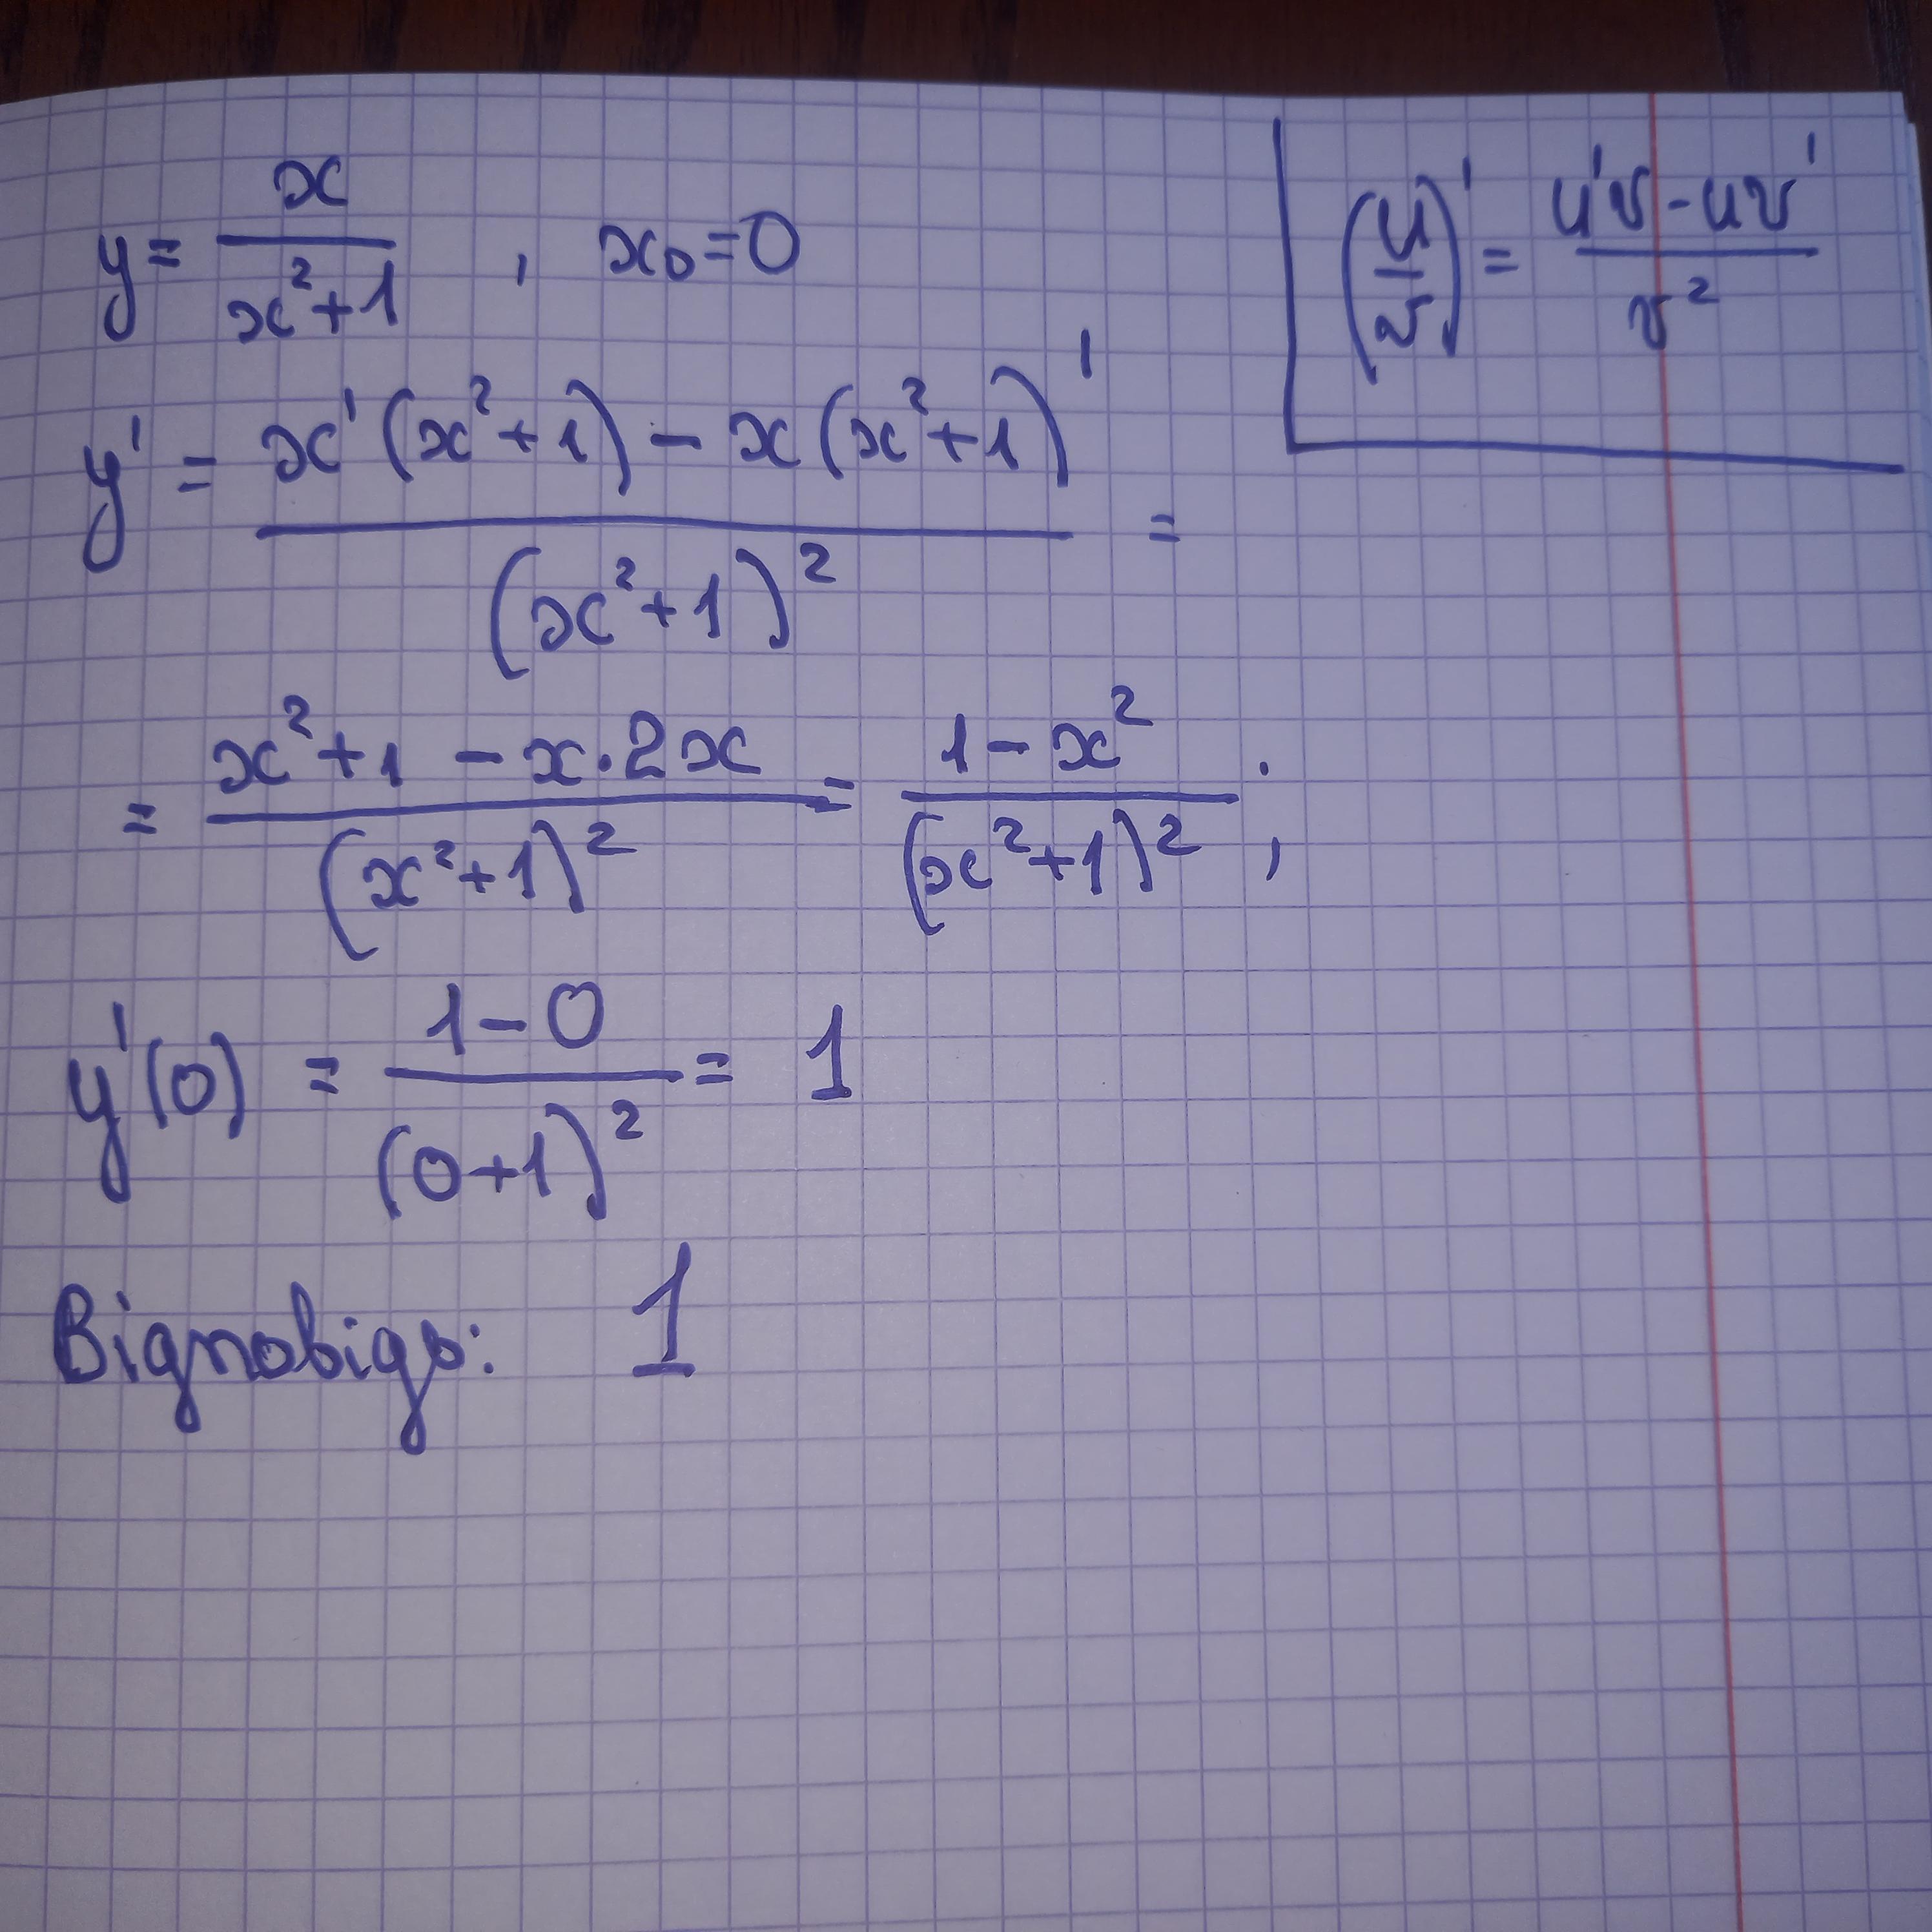 y = x/(x²+1) , x₀=0
(u/v)' = (u'v - uv')/v²
y' = (x'(x²+1) - x(x²+1)')/(x²+1)² =
= (x²+1 - x·2x)/(x²+1)² = (1-x²)/(x²+1)² ;
y'(0) = (1-0)/(0+1)² = 1
Відповідь: 1